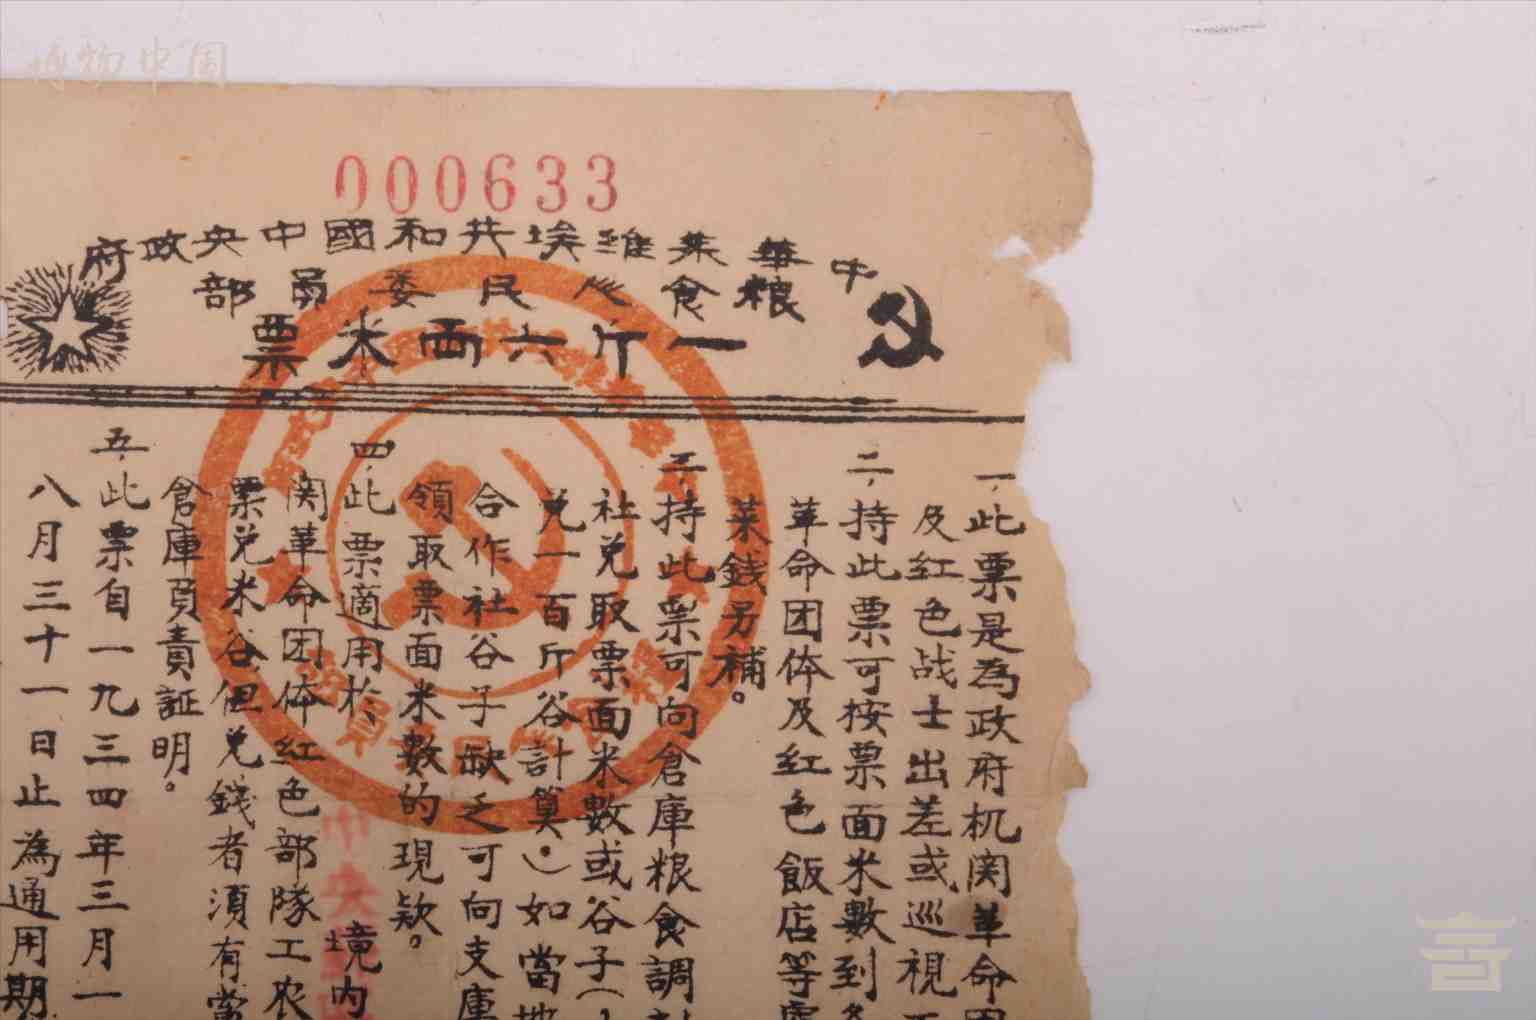 博物中国
000633
中華蘇維埃共和國中央政府
粮食人民委員部
一斤六两米票
一、此票是為政府机関革命团
及红色战士出差或巡視工
二、持此票可按票面米數到各
革命团体及红色飯店等處
菜錢另補。
三、持此票可向倉庫粮食調剂
社兑取票面米數或谷子(
兑一百斤谷計算。)如當地
合作社谷子缺乏可向支庫
領取票面米數的現款。
四、此票適用於 境内
中央
関革命团体红色部隊工农
票兑米谷但兑錢者須有當
倉庫負責証明。
五、此票自一九三四年三月一
八月三十一日止為通用期